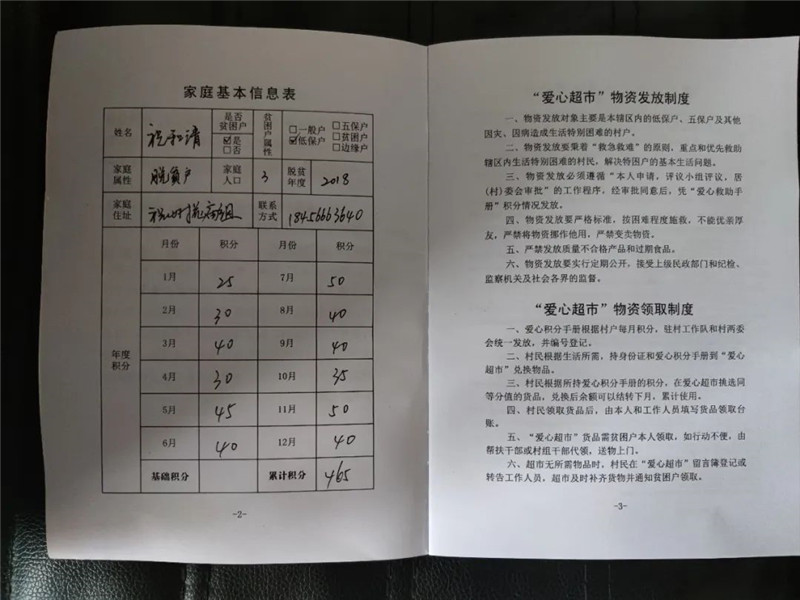 家庭基本信息表
姓名 祝和清 是否贫困户 ☑是 □否 贫困户属性 □一般户 □五保户 ☑低保户 □贫困户 □边缘户
家庭属性 脱贫户 家庭人口 3 脱贫年度 2018
家庭住址 组 联系方式 18456663640
年度积分
月份 积分 月份 积分
1月 25 7月 50
2月 30 8月 40
3月 40 9月 40
4月 30 10月 35
5月 45 11月 50
6月 40 12月 40
基础积分 累计积分 465
-2-
“爱心超市”物资发放制度
一、物资发放对象主要是本辖区内的低保户、五保户及其他
因灾、因病造成生活特别困难的村户。
二、物资发放要秉着“救急救难”的原则,重点和优先救助
辖区内生活特别困难的村民,解决特困户的基本生活问题。
三、物资发放必须遵循“本人申请,评议小组评议、居
(村)委会审批”的工作程序,经审批同意后,凭“爱心救助手
册”积分情况发放。
四、物资发放要严格标准,按困难程度施救,不能优亲厚
友,严禁将物资挪作他用,严禁变卖物资。
五、严禁发放质量不合格产品和过期食品。
六、物资发放要实行定期公开,接受上级民政部门和纪检、
监察机关及社会各界的监督。
“爱心超市”物资领取制度
一、爱心积分手册根据村户每月积分,驻村工作队和村两委
会统一发放,并编号登记。
二、村民根据生活所需,持身份证和爱心积分手册到“爱心
超市”兑换物品。
三、村民根据所持爱心积分手册的积分,在爱心超市挑选同
等分值的货品,兑换后余额可以结转下月,累计使用。
四、村民领取货品后,由本人和工作人员填写货品领取台
账。
五、“爱心超市”货品需贫困户本人领取,如行动不便,由
帮扶干部或村组干部代领,送物上门。
六、超市无所需物品时,村民在“爱心超市”留言簿登记或
转告工作人员,超市及时补齐货物并通知贫困户领取。
-3-